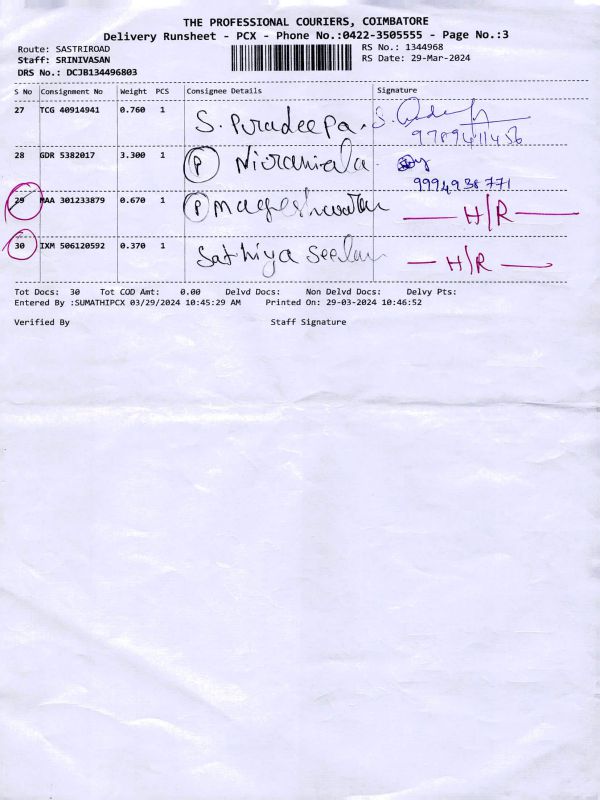 THE PROFESSIONAL COURIERS, COIMBATORE
Delivery Runsheet - PCX - Phone No.:0422-3505555 - Page No.:3
Route: SASTRIROAD RS No.: 1344968
Staff: SRINIVASAN RS Date: 29-Mar-2024
DRS No.: DCJB134496803
S No Consignment No Weight PCS Consignee Details Signature
27 TCG 40914941 0.760 1 S. Puradeepa. S.
9789411456
28 GDR 5382017 3.300 1 P
9994938771
29 MAA 301233879 0.670 1 P Mageshwaran H/R
30 IXM 506120592 0.370 1 Sathiya Seelan H/R
Tot Docs: 30 Tot COD Amt: 0.00 Delvd Docs: Non Delvd Docs: Delvy Pts:
Entered By :SUMATHIPCX 03/29/2024 10:45:29 AM Printed On: 29-03-2024 10:46:52
Verified By Staff Signature